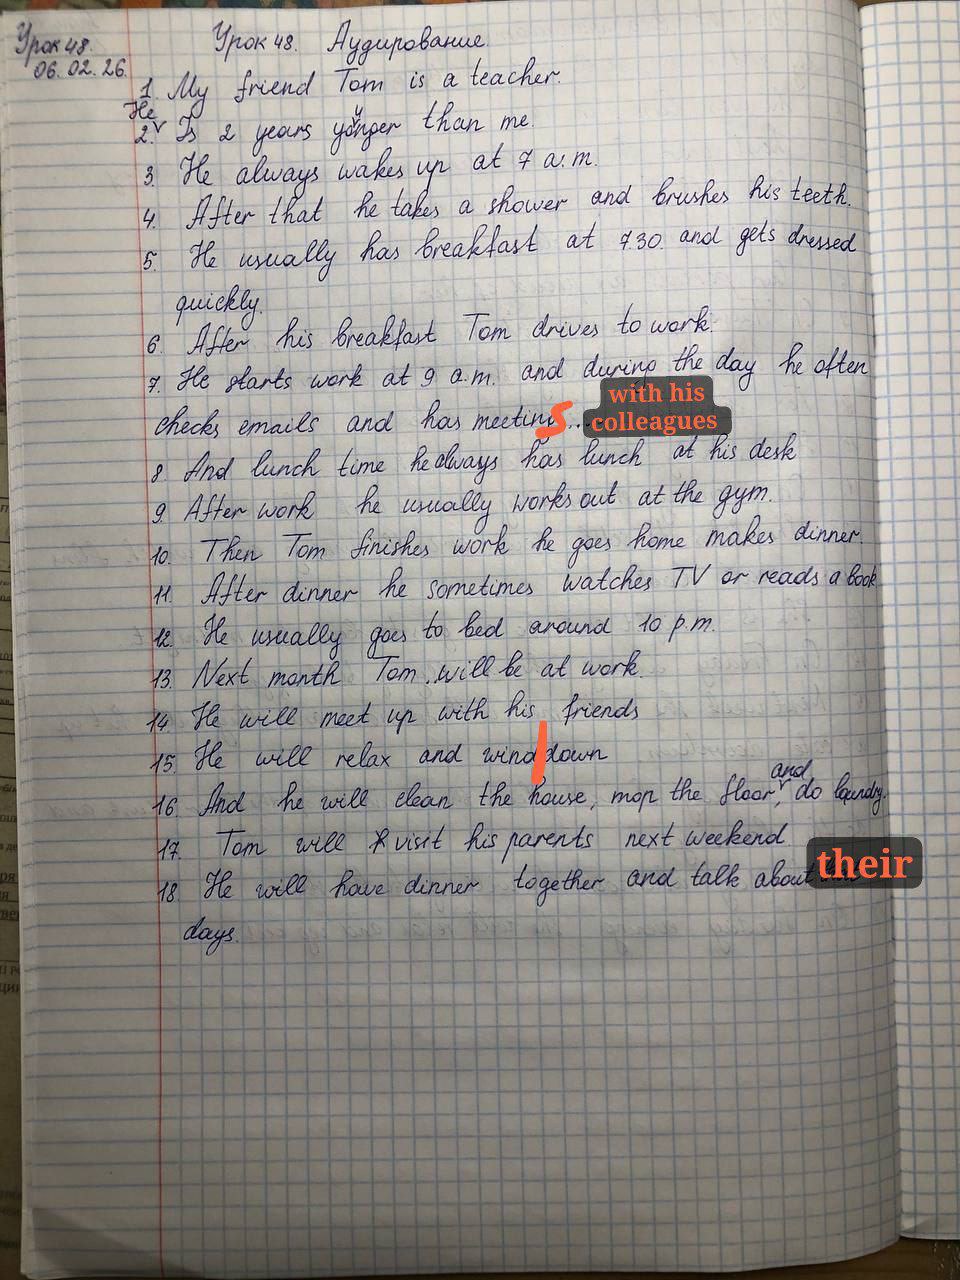 Урок 48.
06.02.26.
Урок 48. Аудирование.
1. My friend Tom is a teacher.
He
2. Is 2 years yonger than me.
u
3. He always wakes up at 7 a.m.
4. After that he takes a shower and brushes his teeth.
5. He usually has breakfast at 7.30. and gets dressed
quickly.
6. After his breakfast Tom drives to work.
7. He starts work at 9 a.m. and during the day he often
checks emails and has meetings... with his colleagues
8. And lunch time he always has lunch at his desk
9. After work he usually works out at the gym.
10. Then Tom finishes work he goes home makes dinner
11. After dinner he sometimes watches TV or reads a book
12. He usually goes to bed around 10 p.m.
13. Next month Tom will be at work.
14. He will meet up with his friends
15. He will relax and wind|down
and
16. And he will clean the house, mop the floor, do laundry.
17. Tom will visit his parents next weekend
18. He will have dinner together and talk about their
days.